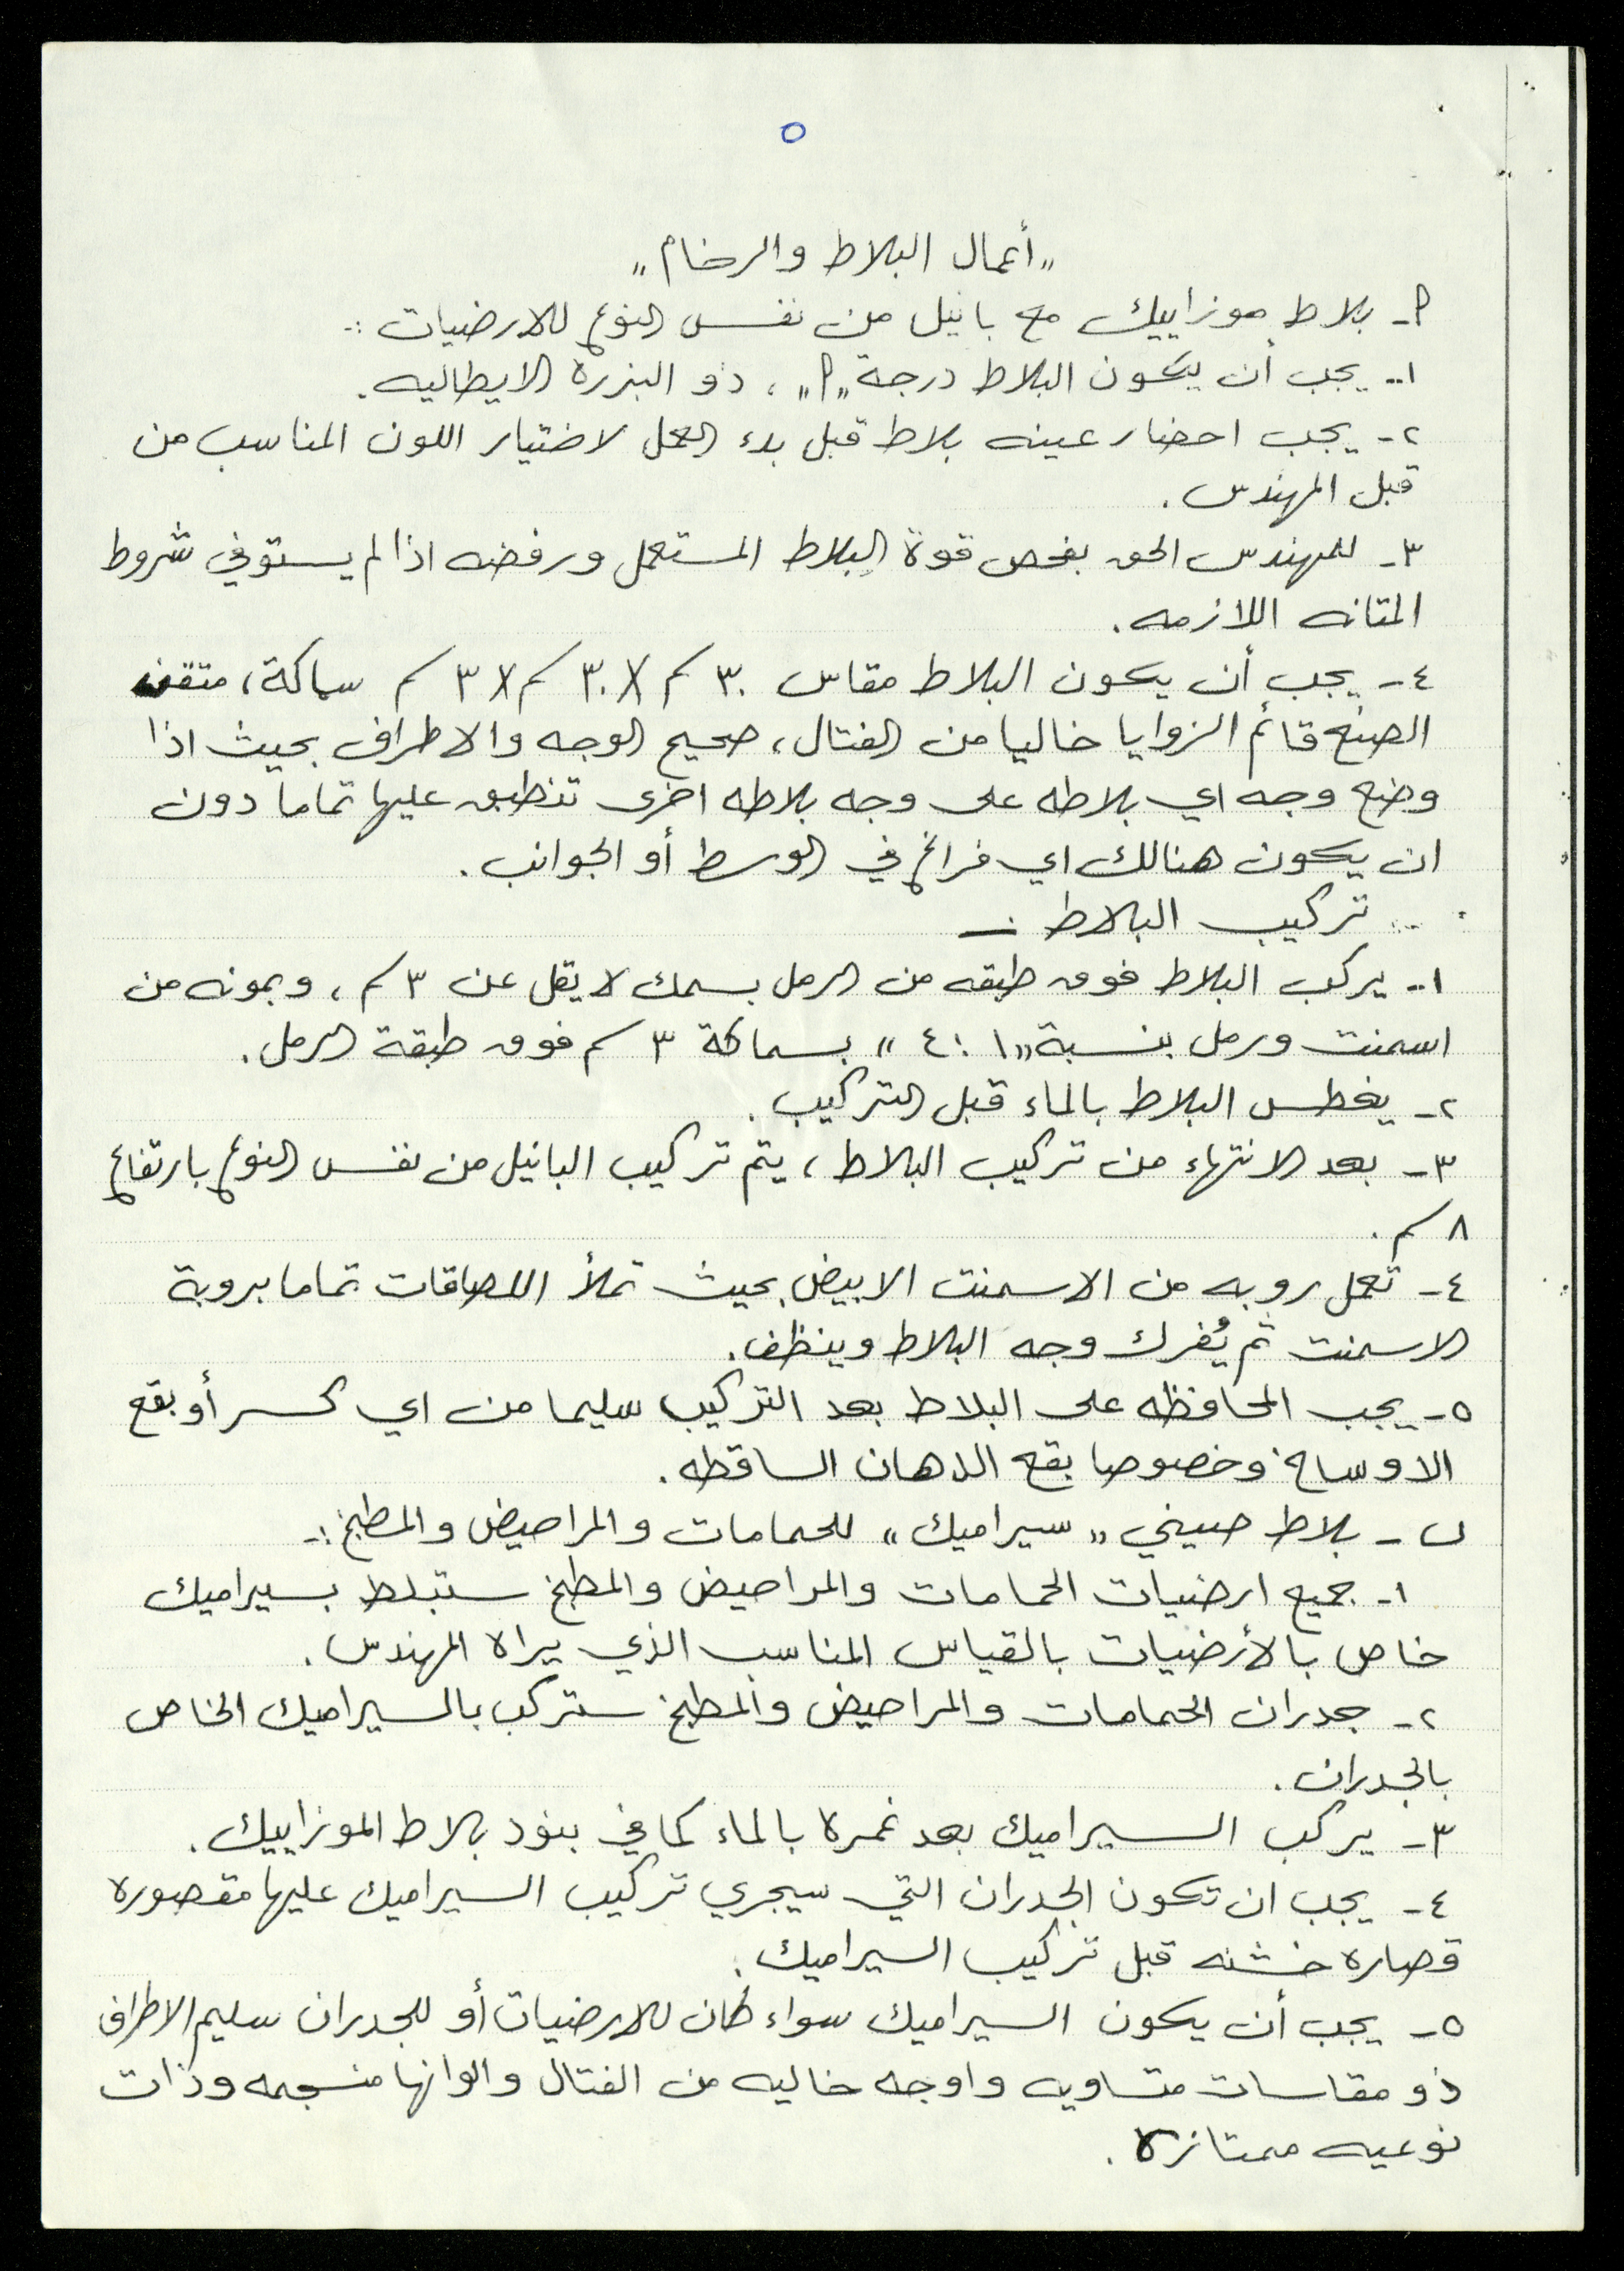 ٥
„أعمال البلاط والرخام„
أ- بلاط موزاييك مع بانيل من نفس النوع للارضيات :-
١- يجب أن يكون البلاط درجة „أ„ ، ذو البزرة الايطاليه.
٢- يجب احضار عينه بلاط قبل بدء العمل لاختيار اللون المناسب من
قبل المهندس.
٣- للمهندس الحق بفحص قوة البلاط المستعمل ورفضه اذا لم يستوفي شروط
المتانه اللازمه.
٤- يجب أن يكون البلاط مقاس ٣٠سم X ٣٠سم X ٣سم سماكة، متقن
الصنع قائم الزوايا خاليا من الفتال، صحيح الوجه والاطراف بحيث اذا
وضع وجه اي بلاطه على وجه بلاطه اخرى تنطبق عليها تماما دون
ان يكون هنالك اي فراغ في الوسط أو الجوانب.
تركيب البلاط :-
١- يركب البلاط فوق طبقه من الرمل بسمك لا يقل عن ٣سم، وبمونه من
اسمنت ورمل بنسبة „١ : ٤„ بسماكة ٣سم فوق طبقة الرمل.
٢- يغطس البلاط بالماء قبل التركيب.
٣- بعد الانتهاء من تركيب البلاط، يتم تركيب البانيل من نفس النوع بارتفاع
٨سم.
٤- تعمل روبه من الاسمنت الابيض بحيث تملأ اللصاقات تماما بروبة
الاسمنت ثم يُفرك وجه البلاط وينظف.
٥- يجب المحافظه على البلاط بعد التركيب سليما من اي كسر أو بقع
الاوساخ وخصوصا بقع الدهان الساقطه.
ب- بلاط صيني „سيراميك„ للحمامات والمراحيض والمطبخ :-
١- جميع ارضيات الحمامات والمراحيض والمطبخ ستبلط بسيراميك
خاص بالأرضيات بالقياس المناسب الذي يراه المهندس.
٢- جدران الحمامات والمراحيض والمطبخ ستركب بالسيراميك الخاص
بالجدران.
٣- يركب السيراميك بعد غمره بالماء كما في بنود بلاط الموزاييك.
٤- يجب ان تكون الجدران التي سيجري تركيب السيراميك عليها مقصوره
قصاره خشنه قبل تركيب السيراميك.
٥- يجب أن يكون السيراميك سواء كان للارضيات أو للجدران سليم الاطراف
ذو مقاسات متساويه واوجه خاليه من الفتال والوانها منسجمه وذات
نوعيه ممتازة.